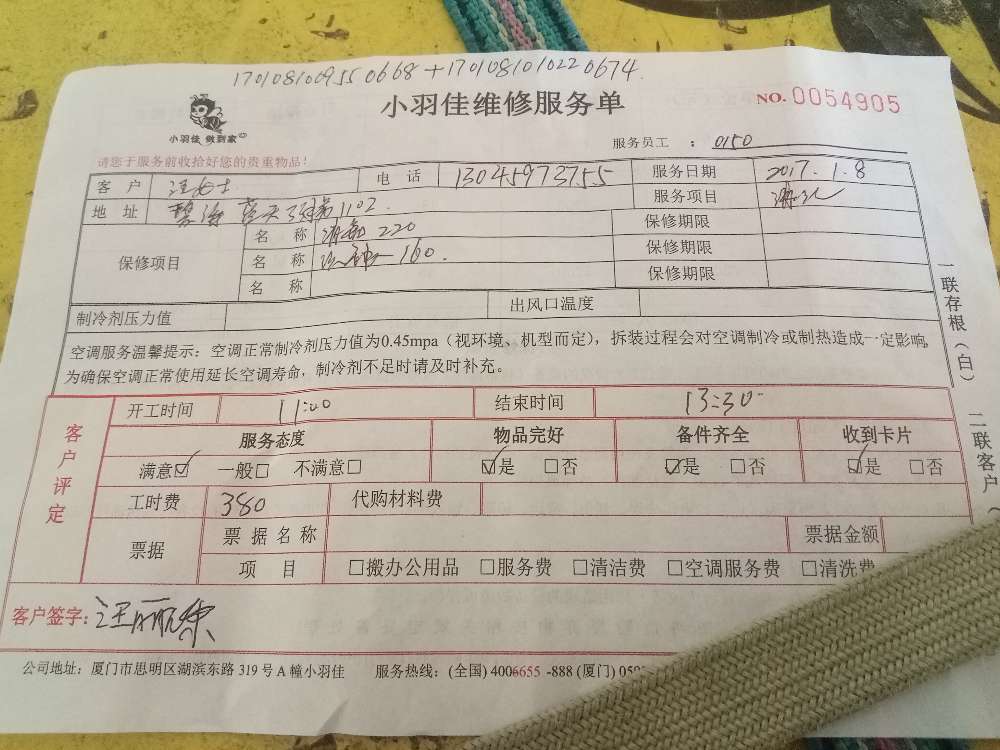 170108100955 0668+170108101022 0674
小羽佳维修服务单
NO. 0054905
小羽佳 做到家
服务员工 : 0150
请您于服务前收拾好您的贵重物品!
客 户 汪女士 电 话 13045973755 服务日期 2017.1.8
地 址 碧海蓝天 1102 服务项目
保修项目 名 称 220 保修期限
名 称 160 保修期限
名 称 保修期限
制冷剂压力值 出风口温度
空调服务温馨提示:空调正常制冷剂压力值为0.45mpa(视环境、机型而定),拆装过程会对空调制冷或制热造成一定影响,
为确保空调正常使用延长空调寿命,制冷剂不足时请及时补充。
客户评定
开工时间 11:00 结束时间 13:30
服务态度 物品完好 备件齐全 收到卡片
满意☑ 一般□ 不满意□ ☑是 □否 ☑是 □否 ☑是 □否
工时费 380 代购材料费
票据 票据名称 票据金额
项 目 □搬办公用品 □服务费 □清洁费 □空调服务费 □清洗费
客户签字:
公司地址:厦门市思明区湖滨东路319号A幢小羽佳 服务热线:(全国)4006655-888(厦门)059
一联存根(白)
二联客户